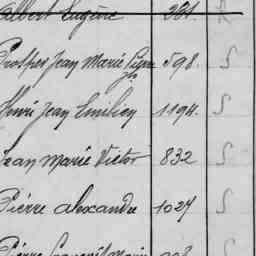 Albert Eugène 261.
Prosper Jean Marie 598. S
Henri Jean Emilien 1194. S
Jean Marie Victor 832 S
Pierre Alexandre 1027 S
Pierre